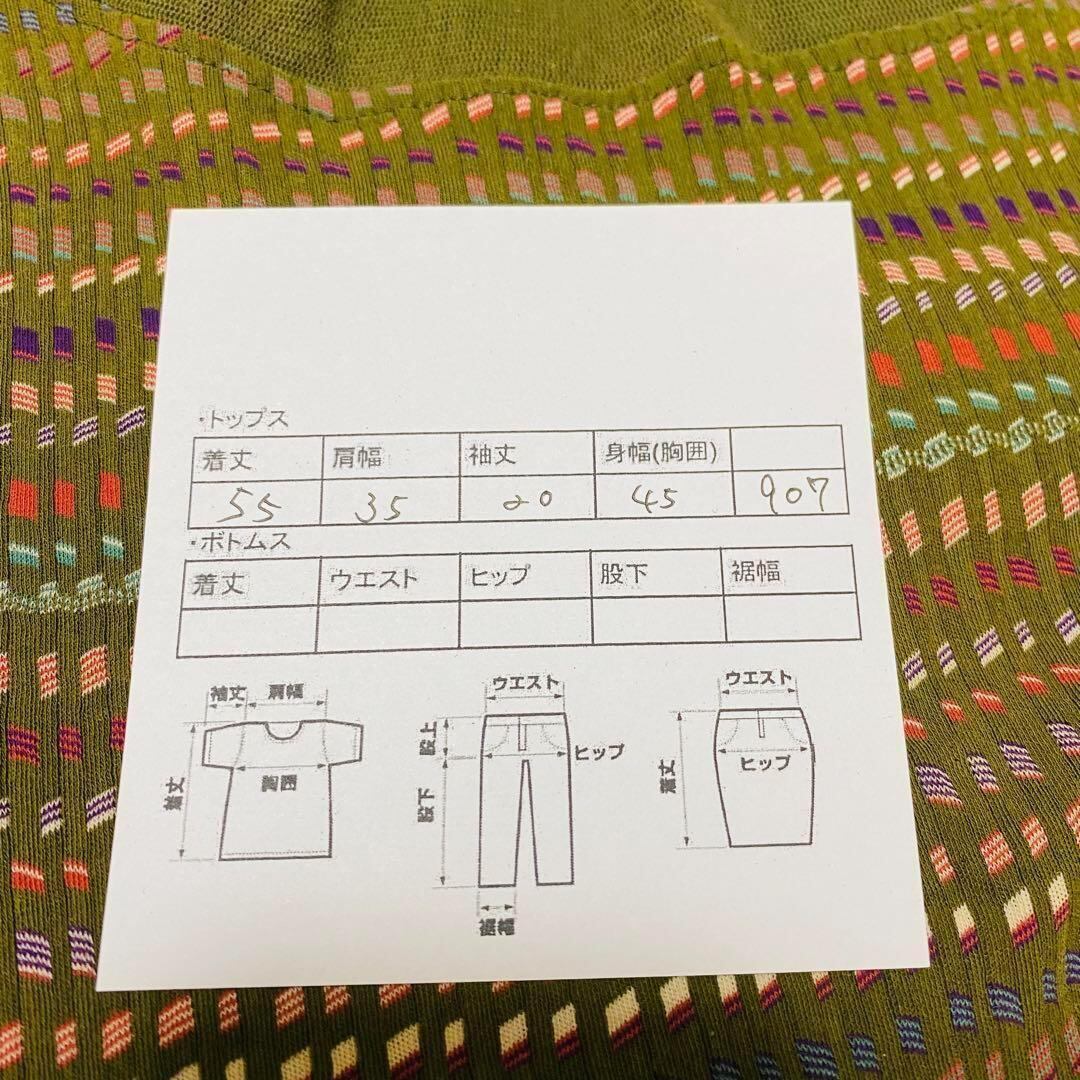 ・トップス
着丈 肩幅 袖丈 身幅(胸囲)
55 35 20 45 907
・ボトムス
着丈 ウエスト ヒップ 股下 裾幅
袖丈 肩幅
着丈
胸囲
ウエスト
股上
ヒップ
股下
裾幅
ウエスト
着丈
ヒップ